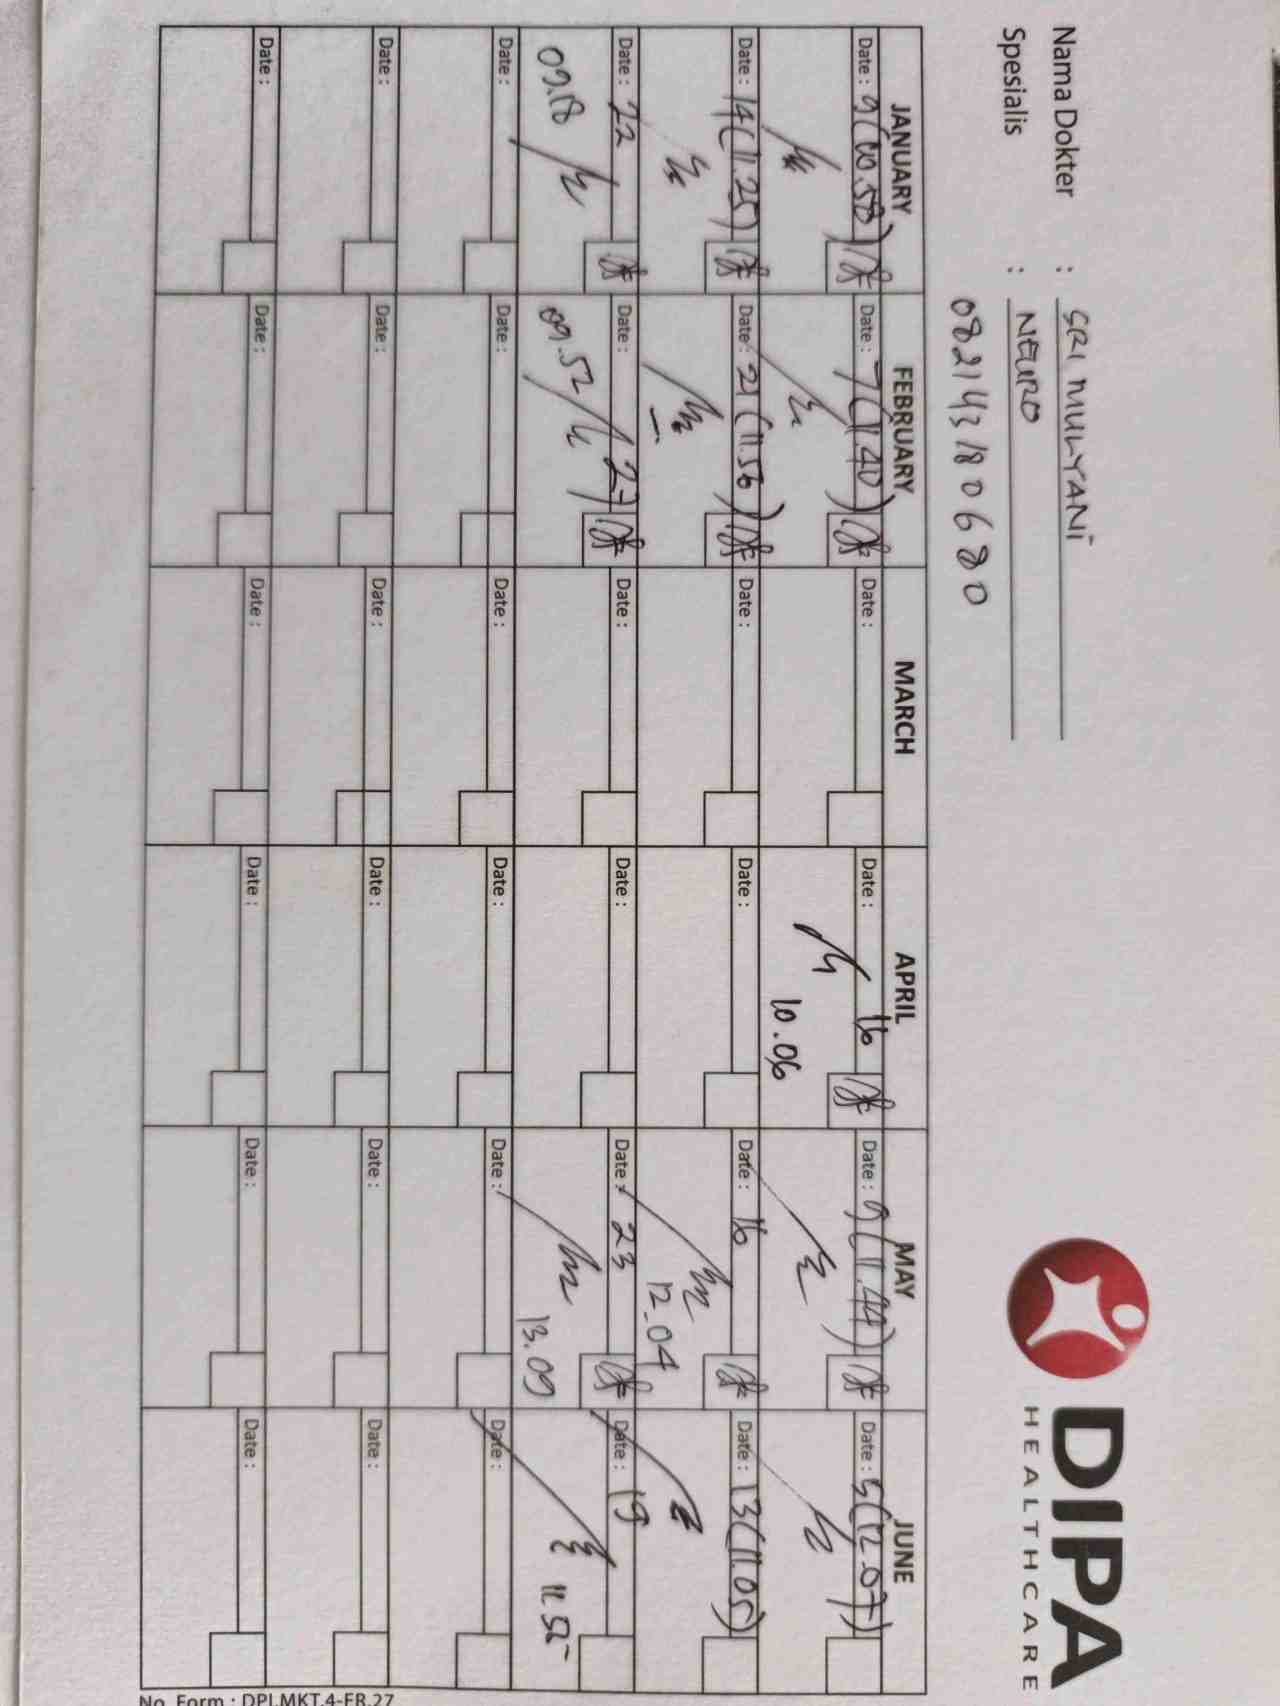 DIPA
HEALTHCARE
Nama Dokter : SRI MULYANI
Spesialis : NEURO
082143180680
JANUARY FEBRUARY MARCH APRIL MAY JUNE
Date : 9 (00.58) Date : 7 (11.40) Date : Date : 16 Date : 9 (11.44) Date : 5 (12.07)
10.06
Date : 14 (11.25) Date : 21 (11.56) Date : Date : Date : 16 Date : 13 (11.05)
12.04
Date : 22 Date : 27 Date : Date : Date : 23 Date : 19
09.18 09.52 13.09 11.55
Date : Date : Date : Date : Date : Date :
Date : Date : Date : Date : Date : Date :
Date : Date : Date : Date : Date : Date :
No. Form : DPI.MKT.4-FR.27